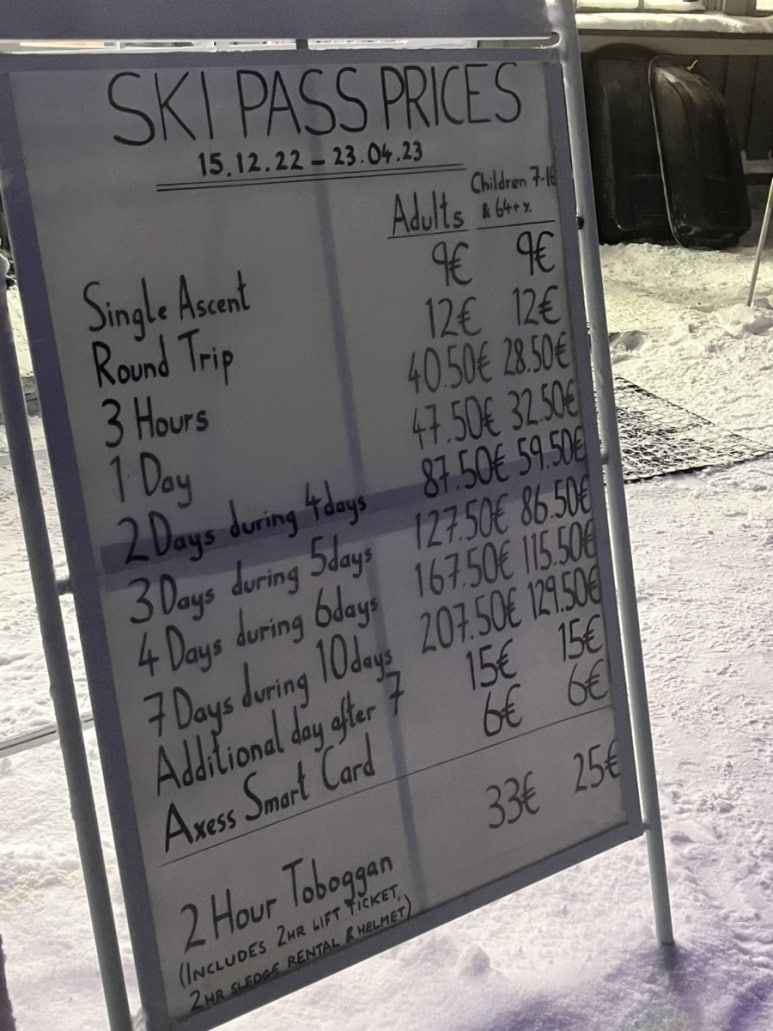 SKI PASS PRICES
15.12.22 – 23.04.23
Adults Children 7-16 & 64+
Single Ascent 9€ 9€
Round Trip 12€ 12€
3 Hours 40.50€ 28.50€
1 Day 47.50€ 32.50€
2 Days during 4days 87.50€ 59.50€
3 Days during 5days 127.50€ 86.50€
4 Days during 6days 167.50€ 115.50€
7 Days during 10days 207.50€ 129.50€
Additional day after 7 15€ 15€
Axess Smart Card 6€ 6€
2 Hour Toboggan 33€ 25€
(INCLUDES 2HR LIFT TICKET,
2HR SLEDGE RENTAL & HELMET)